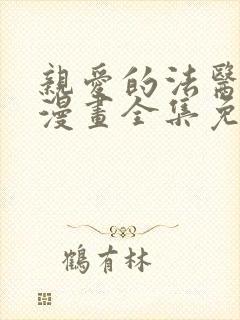 親愛的法醫
漫畫全集免
鶴有林